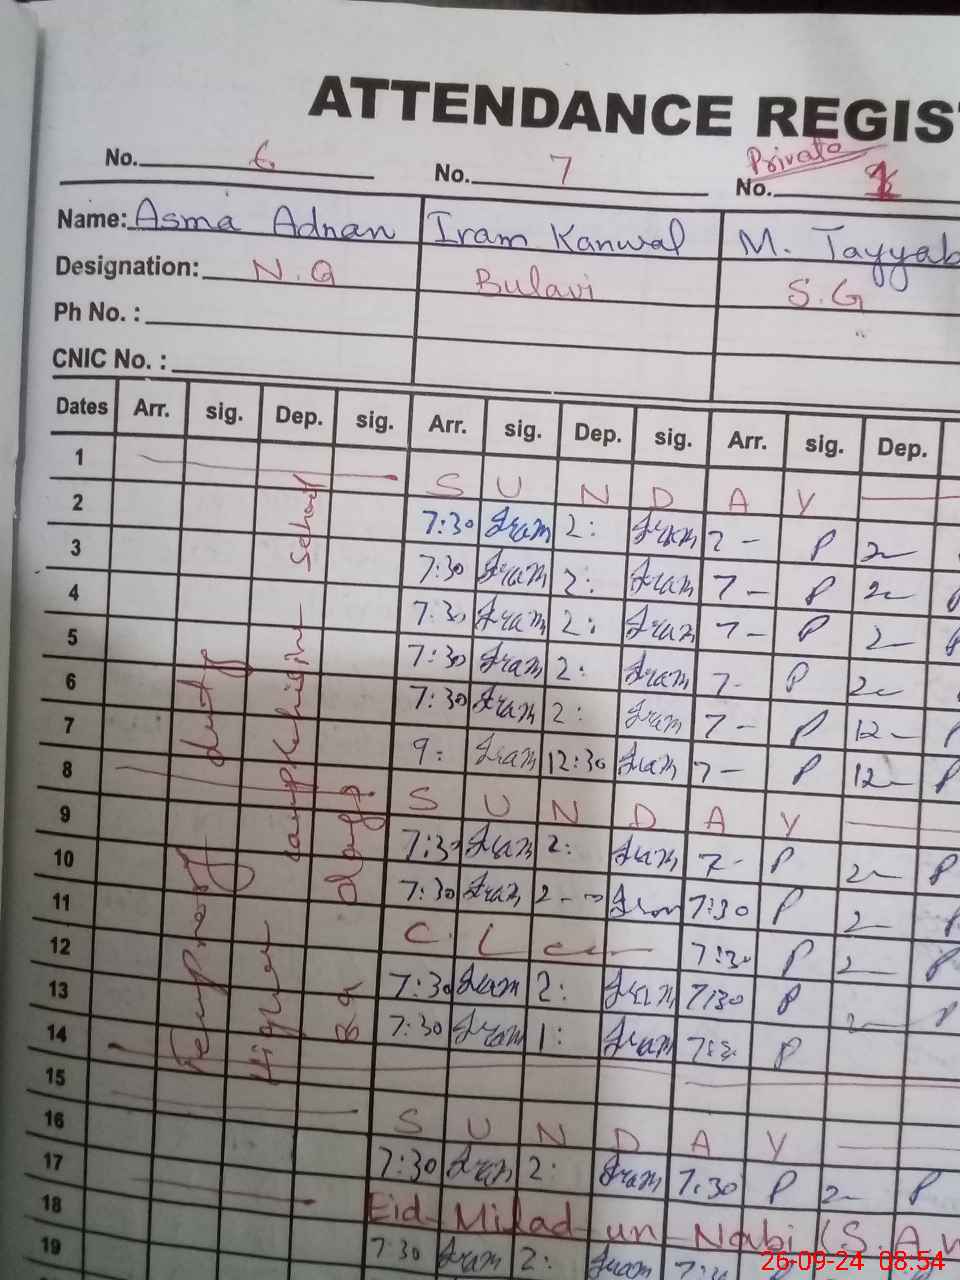 ATTENDANCE REGIST
No. 6 No. 7 Private No. 1
Name: Asma Adnan Iram Kanwal M. Tayyab
Designation: N.Q Bulavi S.G
Ph No. :
CNIC No. :
Dates Arr. sig. Dep. sig. Arr. sig. Dep. sig. Arr. sig. Dep.
1 S U N D A Y
2 7:30 Iram 2: Iram 7 - P 2
3 7:30 Iram 2: Iram 7 - P 2
4 7:30 Iram 2: Iram 7 - P 2
5 7:30 Iram 2: Iram 7 - P 2
6 7:30 Iram 2: Iram 7 - P 12
7 9: Iram 12:30 Iram 7 - P 12
8 S U N D A Y
9 7:30 Iram 2: Iram 7 - P 2 P
10 7:30 Iram 2 - Iram 7:30 P 2
11 C. L 7:30 P 2 P
12 7:30 Iram 2: Iram 7:30 P 2 P
13 7:30 Iram 1: Iram 7:3 P
14
15 S U N D A Y
16 7:30 Iram 2: Iram 7:30 P 2 P
17 Eid-Milad-un-Nabi (S.A.W
18 7:30 Iram 2: Iram
19
duty
Higher school
days
26-09-24 08:54